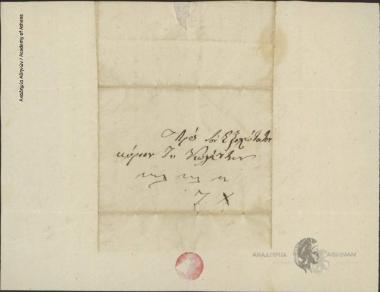 Ακαδημία Αθηνών / Academy of Athens
Πρὸς τὸν Ἐξοχώτατον
κύριον Ἰω. Κωλέττην
ΑΚΑΔΗΜΙΑ ΑΘΗΝΩΝ